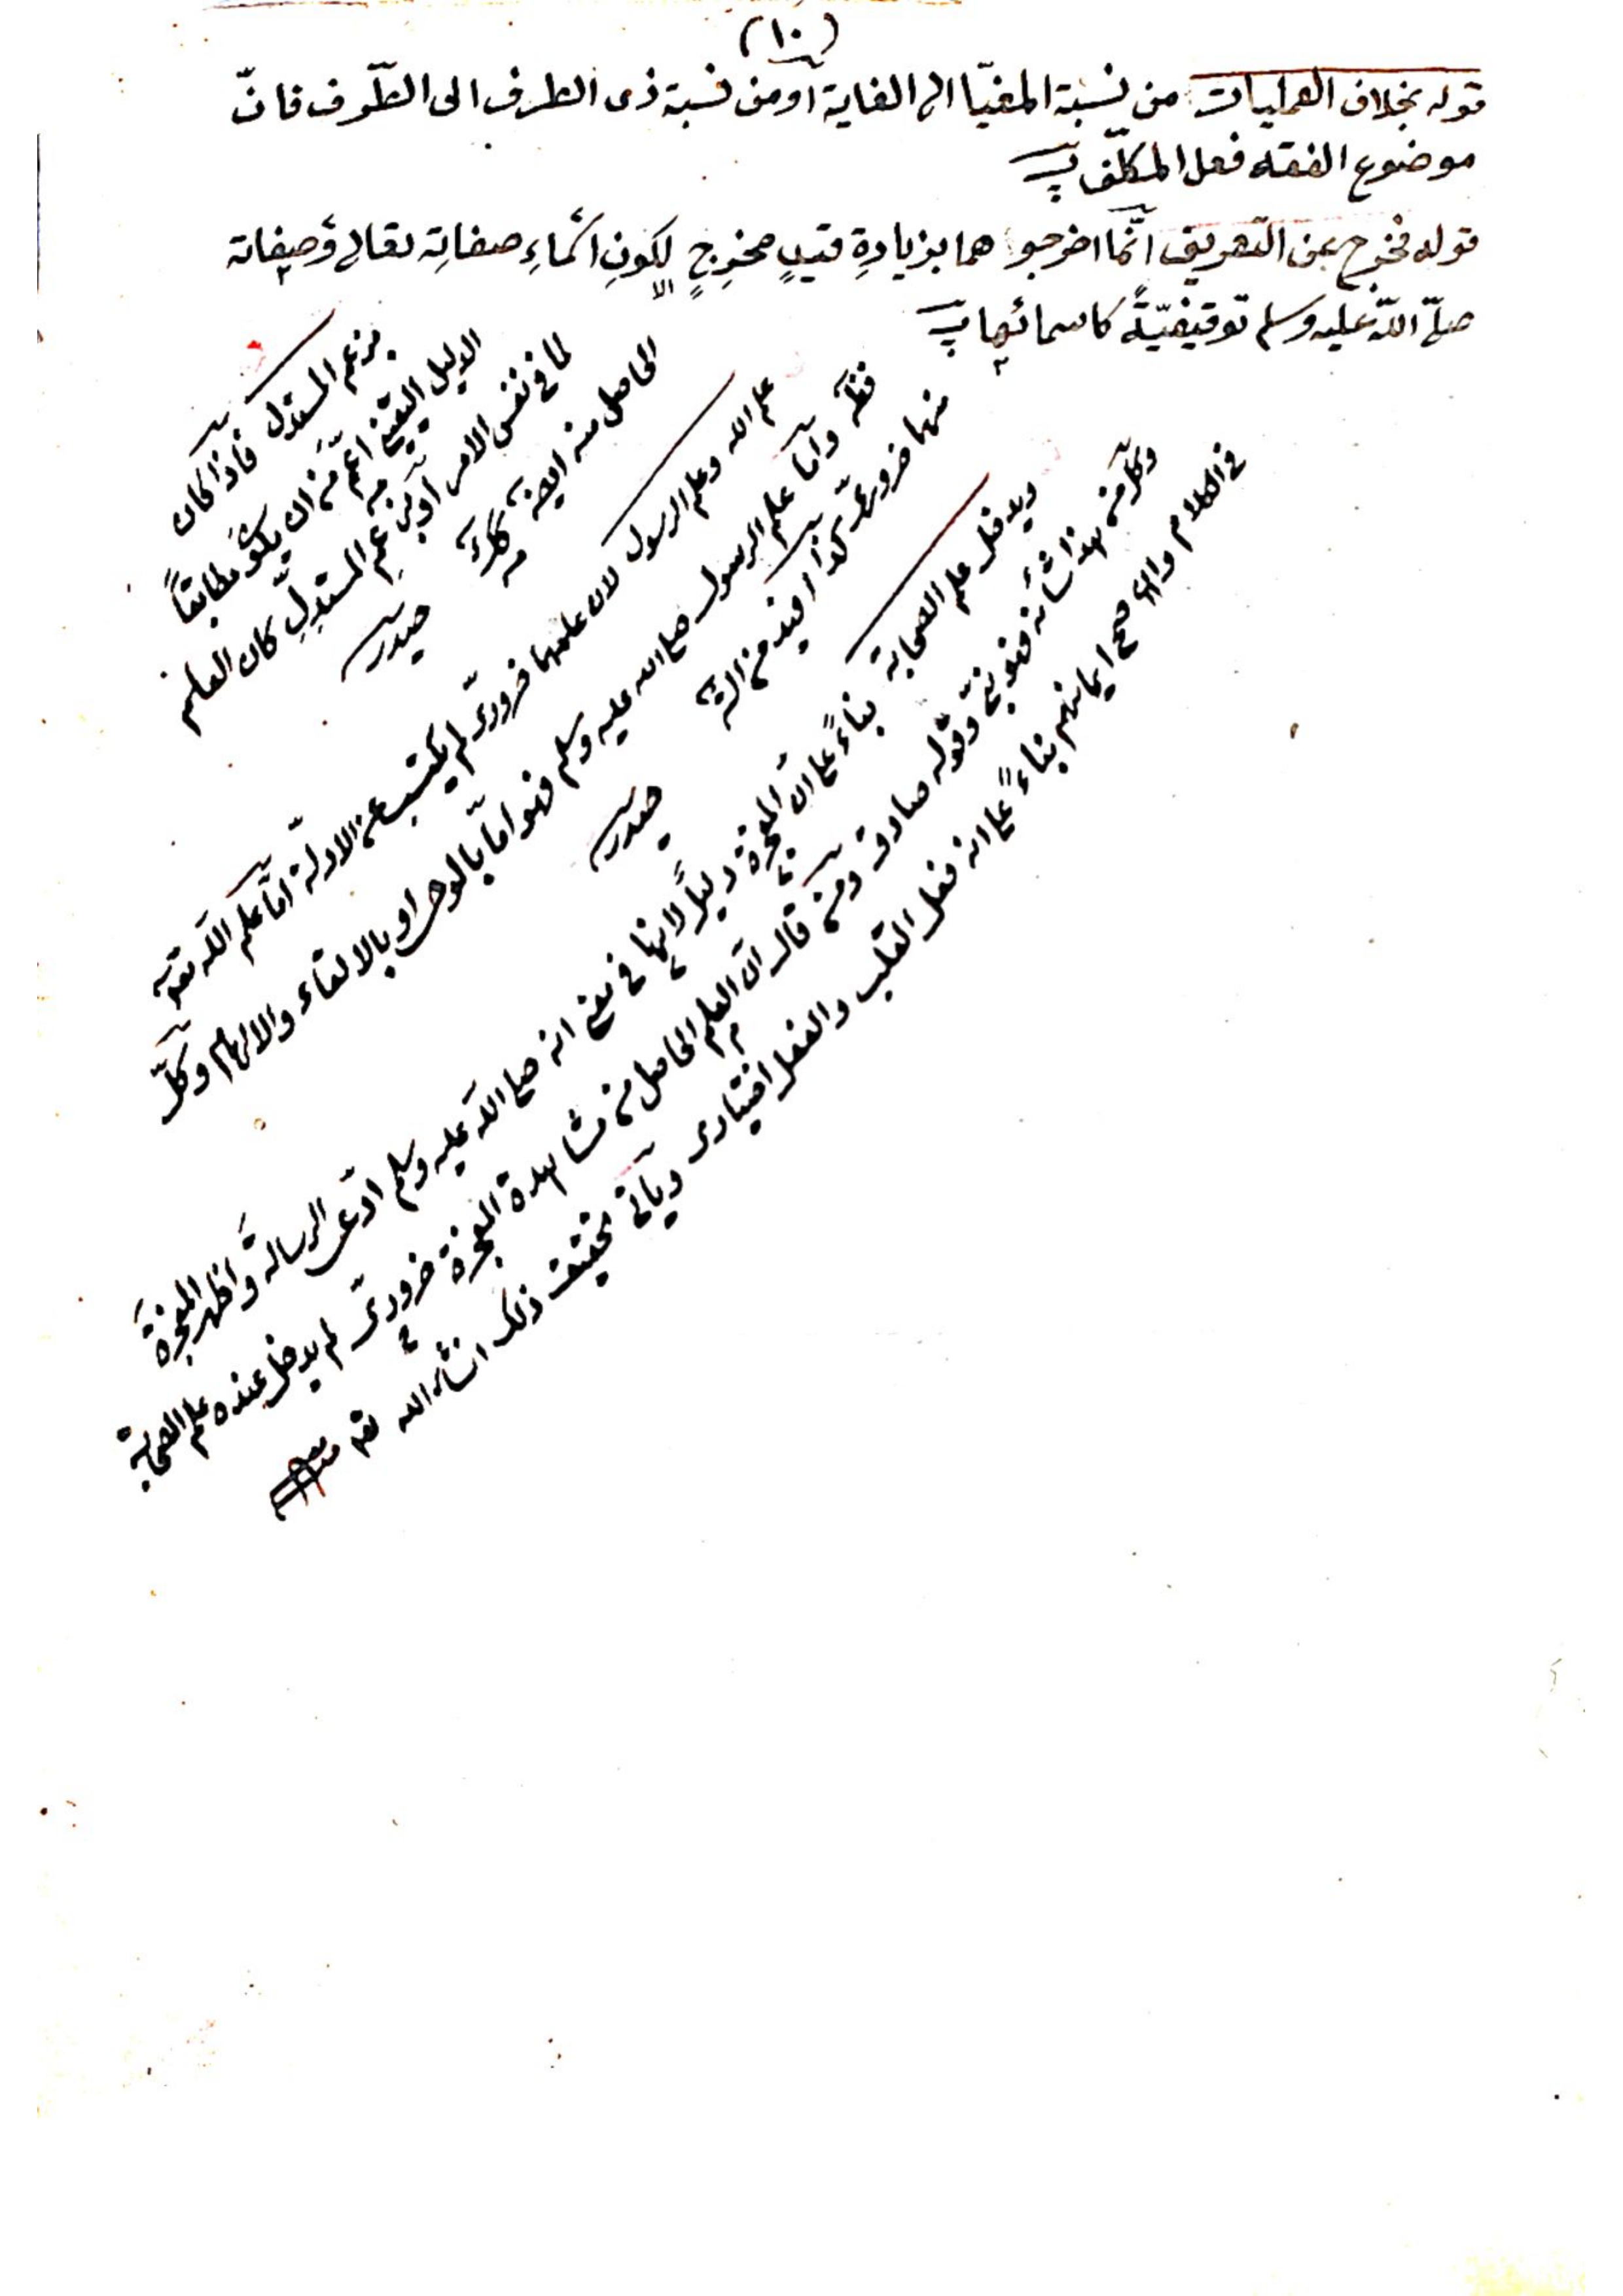 (١٠)
قوله بخلاف العمليات من نسبة المغيّا الى الغاية او من نسبة ذى الظرف الى الظّرف فانّ
موضوع الفقه فعل المكلّف
قوله فخرج عن التعريف انّما اخرجوا هما بزيادةِ قيدٍ مخرِجٍ لكونِ اسماءِ صفاتِه تعالى وصفاته
صلّى اللّه عليه وسلم توقيفيّةً كاسمائهما
بزعم المستدل فاذا كان
الدليل اليقينى اعمّ من ان يكون مطابقاً
لما فى نفس الامر او بزعم المستدلّ كان العلم
الحاصل منه ايضا كذلك
حيدر
علم الله وعلم الرسول لان علمهما ضرورى لم يكتسب عن الادلة امّا علم اللّه تع
فظ وامّا علم الرسول صلى الله عليه وسلم فهو امّا بالوحى او بالالقاء والالهام وكلّ
منهما ضرورىّ كذا افيد من
حيدر
ويدخل علم الصحابة بناءً على انّ المعجزة دليلاً لانها فى معنى انه صلى اللّه عليه وسلم ادّعى الرسالة واظهر المعجزة
وكلّ من هذا شأنه فهو نبىّ وقوله صادق ومن قال انّ العلم الحاصل من مشاهدة المعجزة ضرورىّ لم يدخل عنده علم الصحابة
فى الكلام وان صح ايمانهم بناءً على انه فعل القلب والفعل اختيارى ويأتى تحقيق ذلك انشاء الله تع